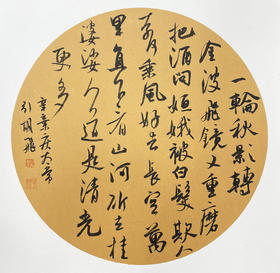 一輪秋影轉
金波飛鏡又重磨
把酒問姮娥被白髮欺人
奈何乘風好去長空萬
里直下看山河斫去桂
婆娑人道是清光
更多
辛棄疾太常
引